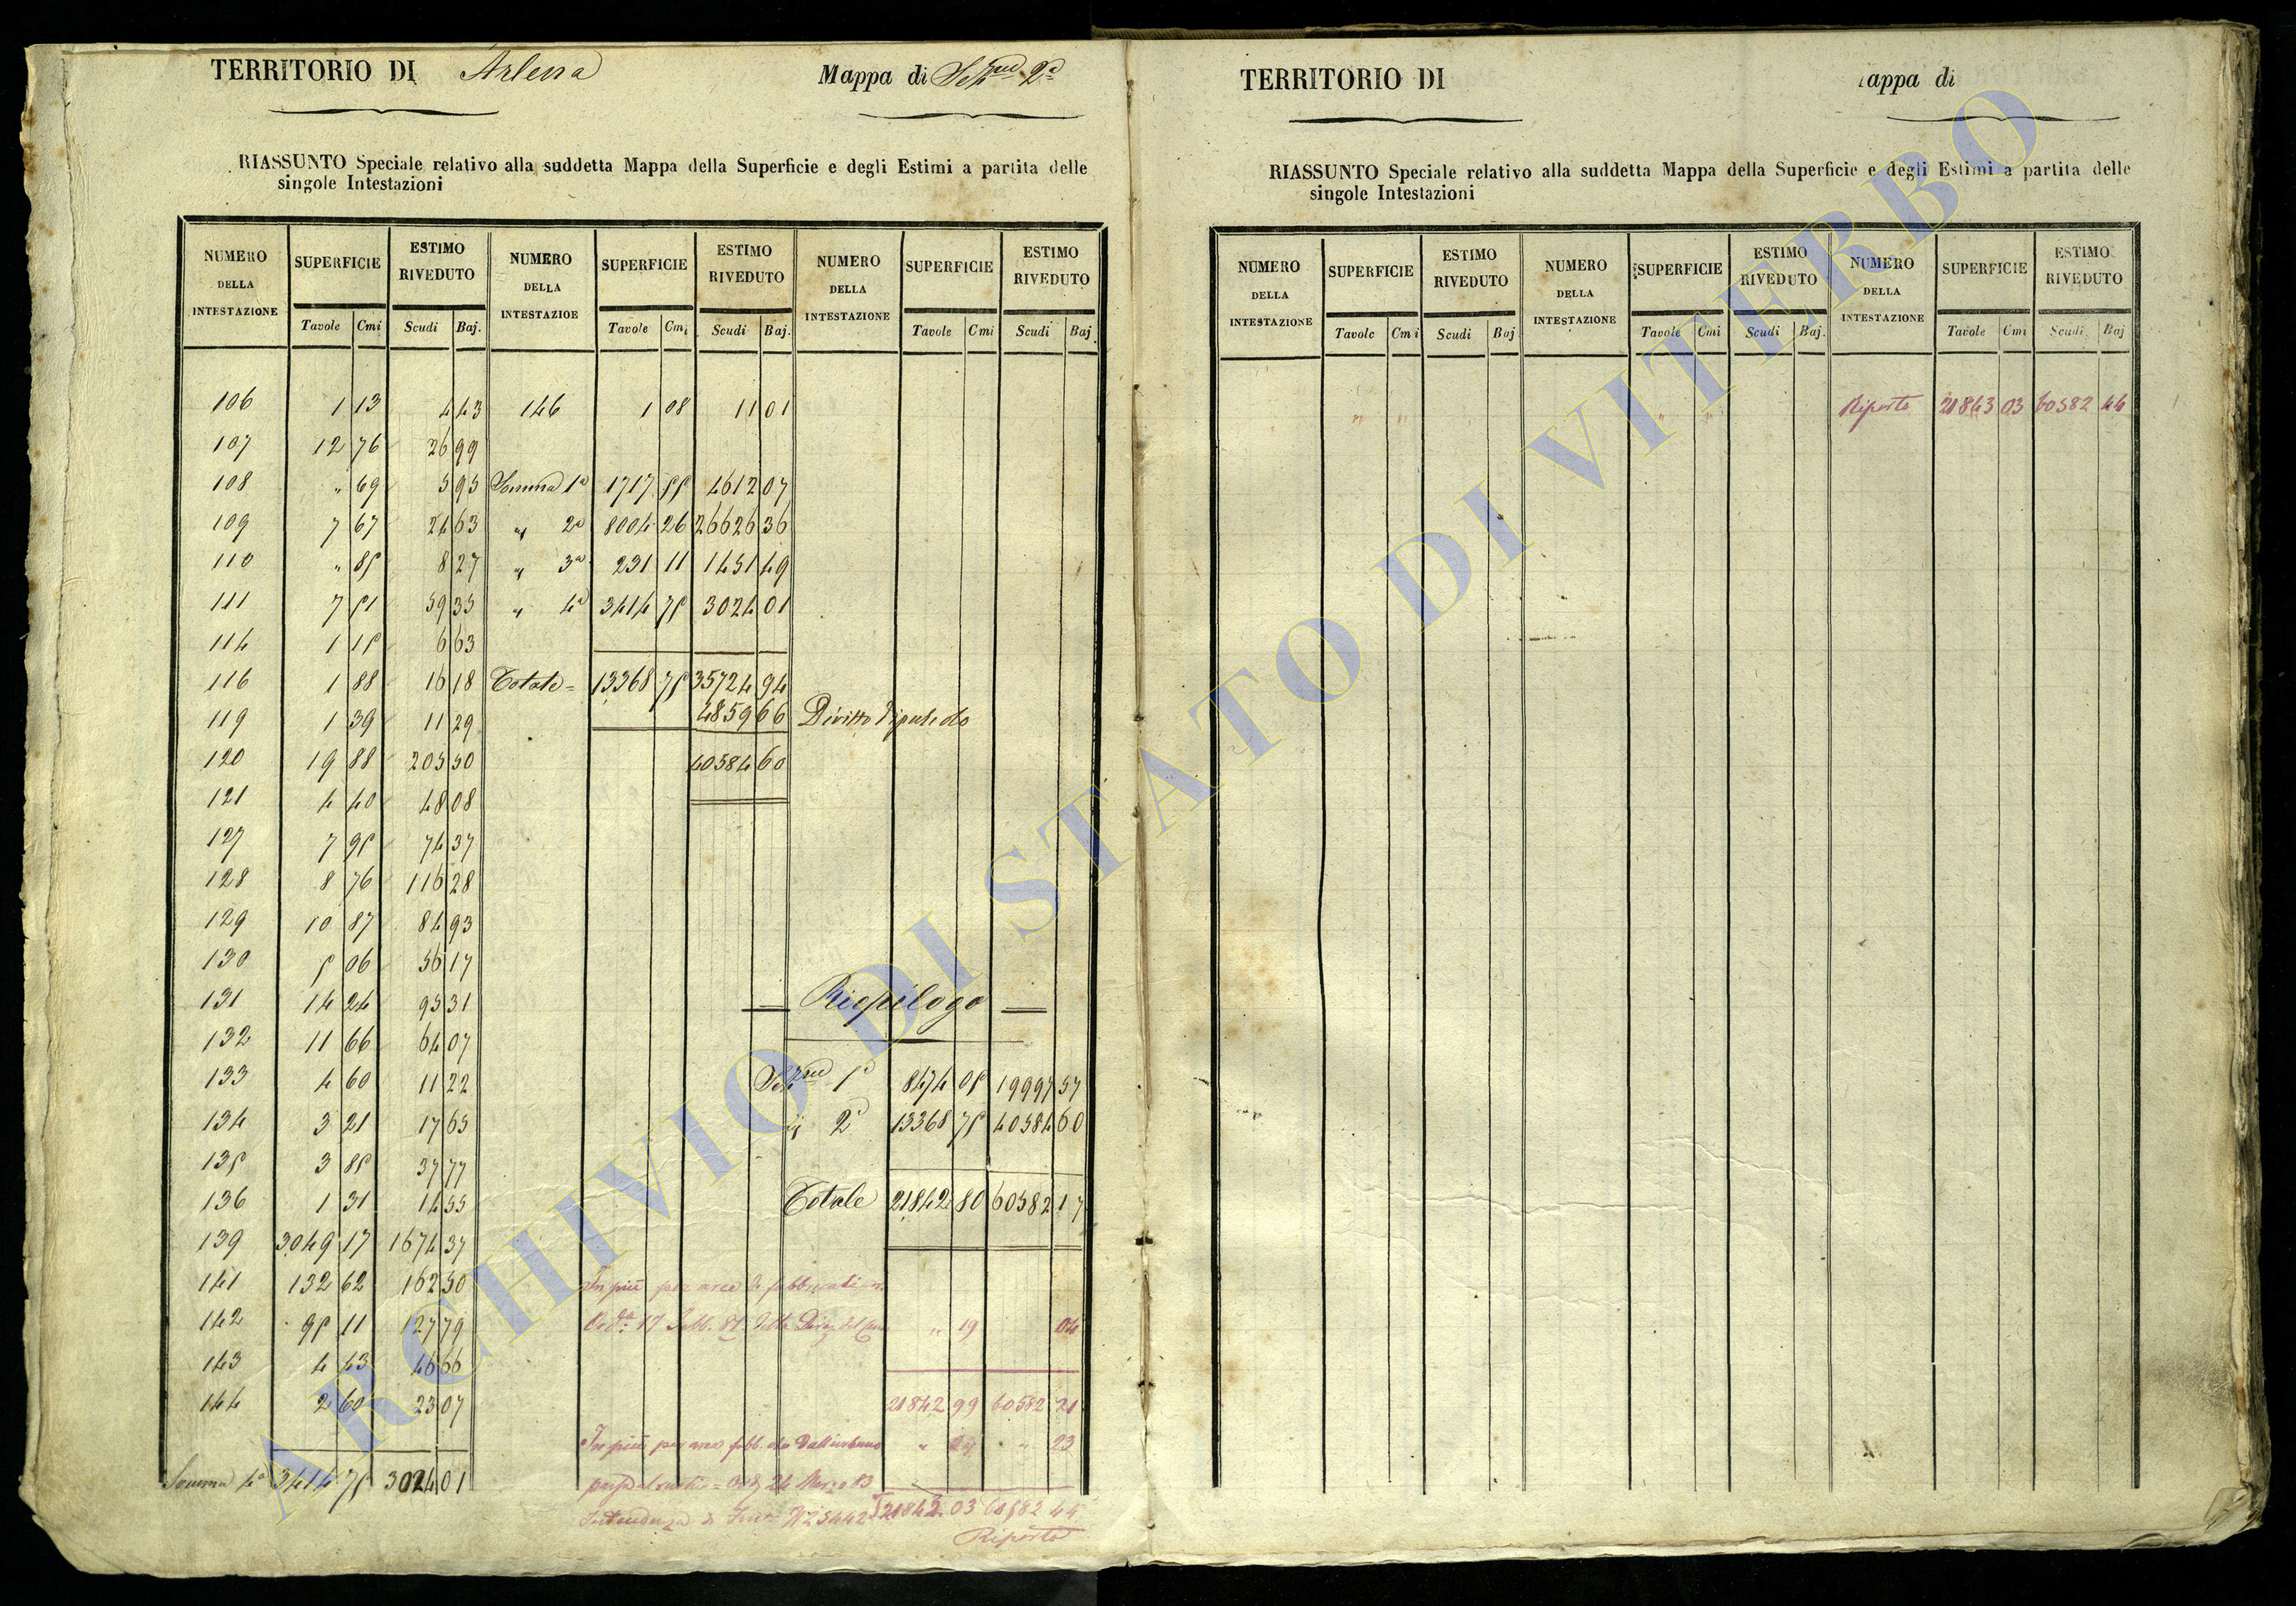 TERRITORIO DI Arlena Mappa di Sezne 2a
RIASSUNTO Speciale relativo alla suddetta Mappa della Superficie e degli Estimi a partita delle
singole Intestazioni
NUMERO DELLA INTESTAZIONE SUPERFICIE ESTIMO RIVEDUTO NUMERO DELLA INTESTAZIOE SUPERFICIE ESTIMO RIVEDUTO NUMERO DELLA INTESTAZIONE SUPERFICIE ESTIMO RIVEDUTO
Tavole Cmi Scudi Baj. Tavole Cmi Scudi Baj. Tavole Cmi Scudi Baj.
106 1 13 4 43 146 1 08 11 01
107 12 76 26 99
108 " 69 5 95 Somma 1a 1717 55 4612 07
109 7 67 24 63 " 2a 8004 26 26626 36
110 " 85 8 27 " 3a 231 11 1451 49
111 7 51 59 35 " 4a 3414 75 3024 01
114 1 15 6 63
116 1 88 16 18 Totale = 13368 75 35724 94
119 1 39 11 29 4859 66 Diritto di
120 19 88 205 50 40584 60
121 4 40 48 08
127 7 95 74 37
128 8 76 116 28
129 10 87 84 93
130 5 06 56 17
131 14 24 95 31 Riepilogo
132 11 66 64 07
133 4 60 11 22 Sezne 1a 8474 05 19997 57
134 3 21 17 65 " 2a 13368 75 40584 60
135 3 85 37 77
136 1 31 14 55 Totale 21842 80 60582 17
139 3049 17 1674 37
141 132 62 162 50 In più per aree di fabbricati
142 95 11 127 79 17 Febb. della " 19 04
143 4 43 46 66
144 2 60 23 07 21842 99 60582 21
In più per area fabb. dall'urbano " " 23
Somma 4a 3414 75 3024 01 24 Marzo 83
Intendenza di 21843 03 60582 44
Riporto
TERRITORIO DI appa di
RIASSUNTO Speciale relativo alla suddetta Mappa della Superficie e degli Estimi a partita delle
singole Intestazioni
NUMERO DELLA INTESTAZIONE SUPERFICIE ESTIMO RIVEDUTO NUMERO DELLA INTESTAZIONE SUPERFICIE ESTIMO RIVEDUTO NUMERO DELLA INTESTAZIONE SUPERFICIE ESTIMO RIVEDUTO
Tavole Cmi Scudi Baj Tavole Cmi Scudi Baj. Tavole Cmi Scudi Baj
" " " " Riporto 21843 03 60582 44
ARCHIVIO DI STATO DI VITERBO